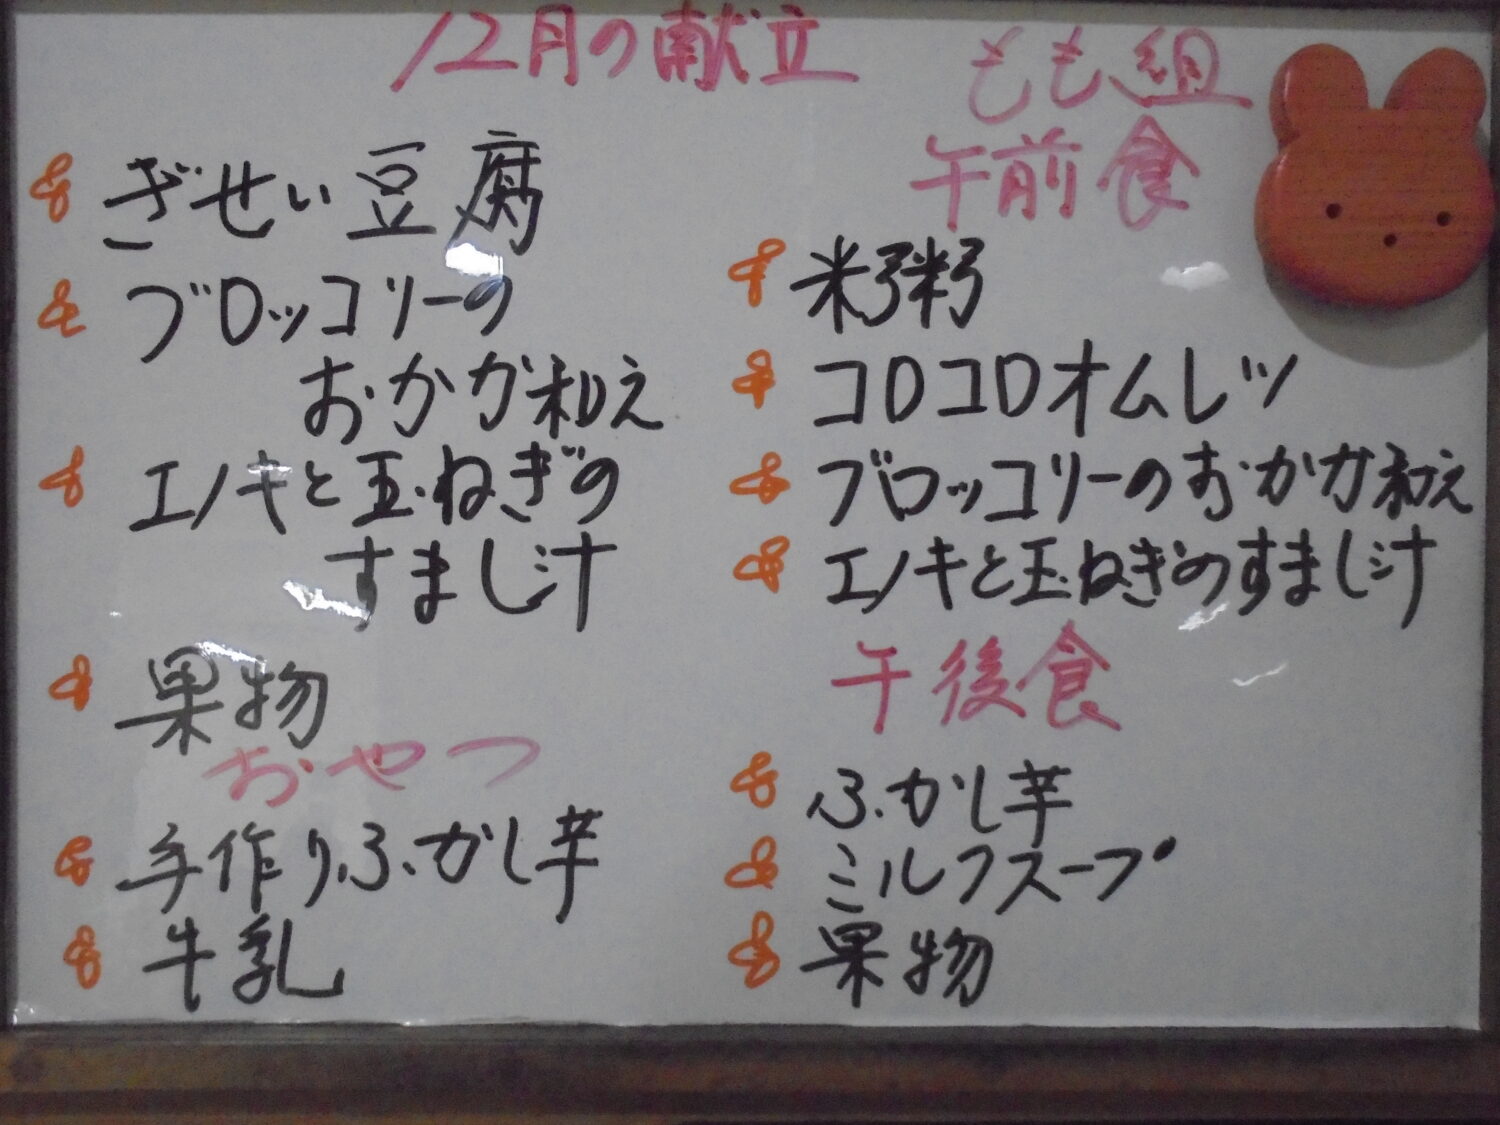 12月の献立
ぎせい豆腐
ブロッコリーの
おかか和え
エノキと玉ねぎの
すまし汁
果物
おやつ
手作りふかし芋
牛乳
もも組
午前食
米粥
コロコロオムレツ
ブロッコリーのおかか和え
エノキと玉ねぎのすまし汁
午後食
ふかし芋
ミルクスープ
果物